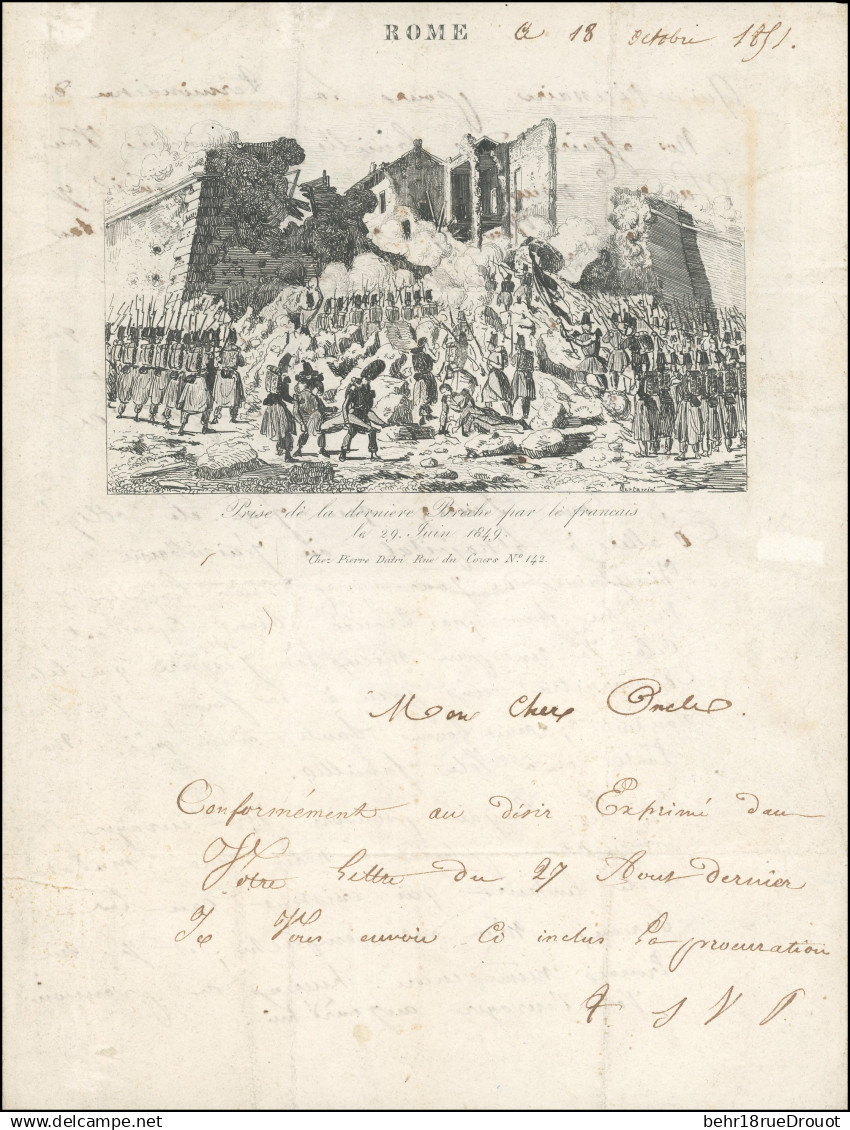 ROME Ce 18 octobre 1851.
Prise dè la derniere Brêche par lè francais
le 29. Juin 1849.
Chez Pierre Datri Rue du Cours Nº 142.
Mon cher Oncle.
Conformément au désir Exprimé dan
Votre lettre du 27 Aout dernier
Je Vous envoie Ci inclus la procuration
T S V P
delcampe.net
behr18rueDrouot